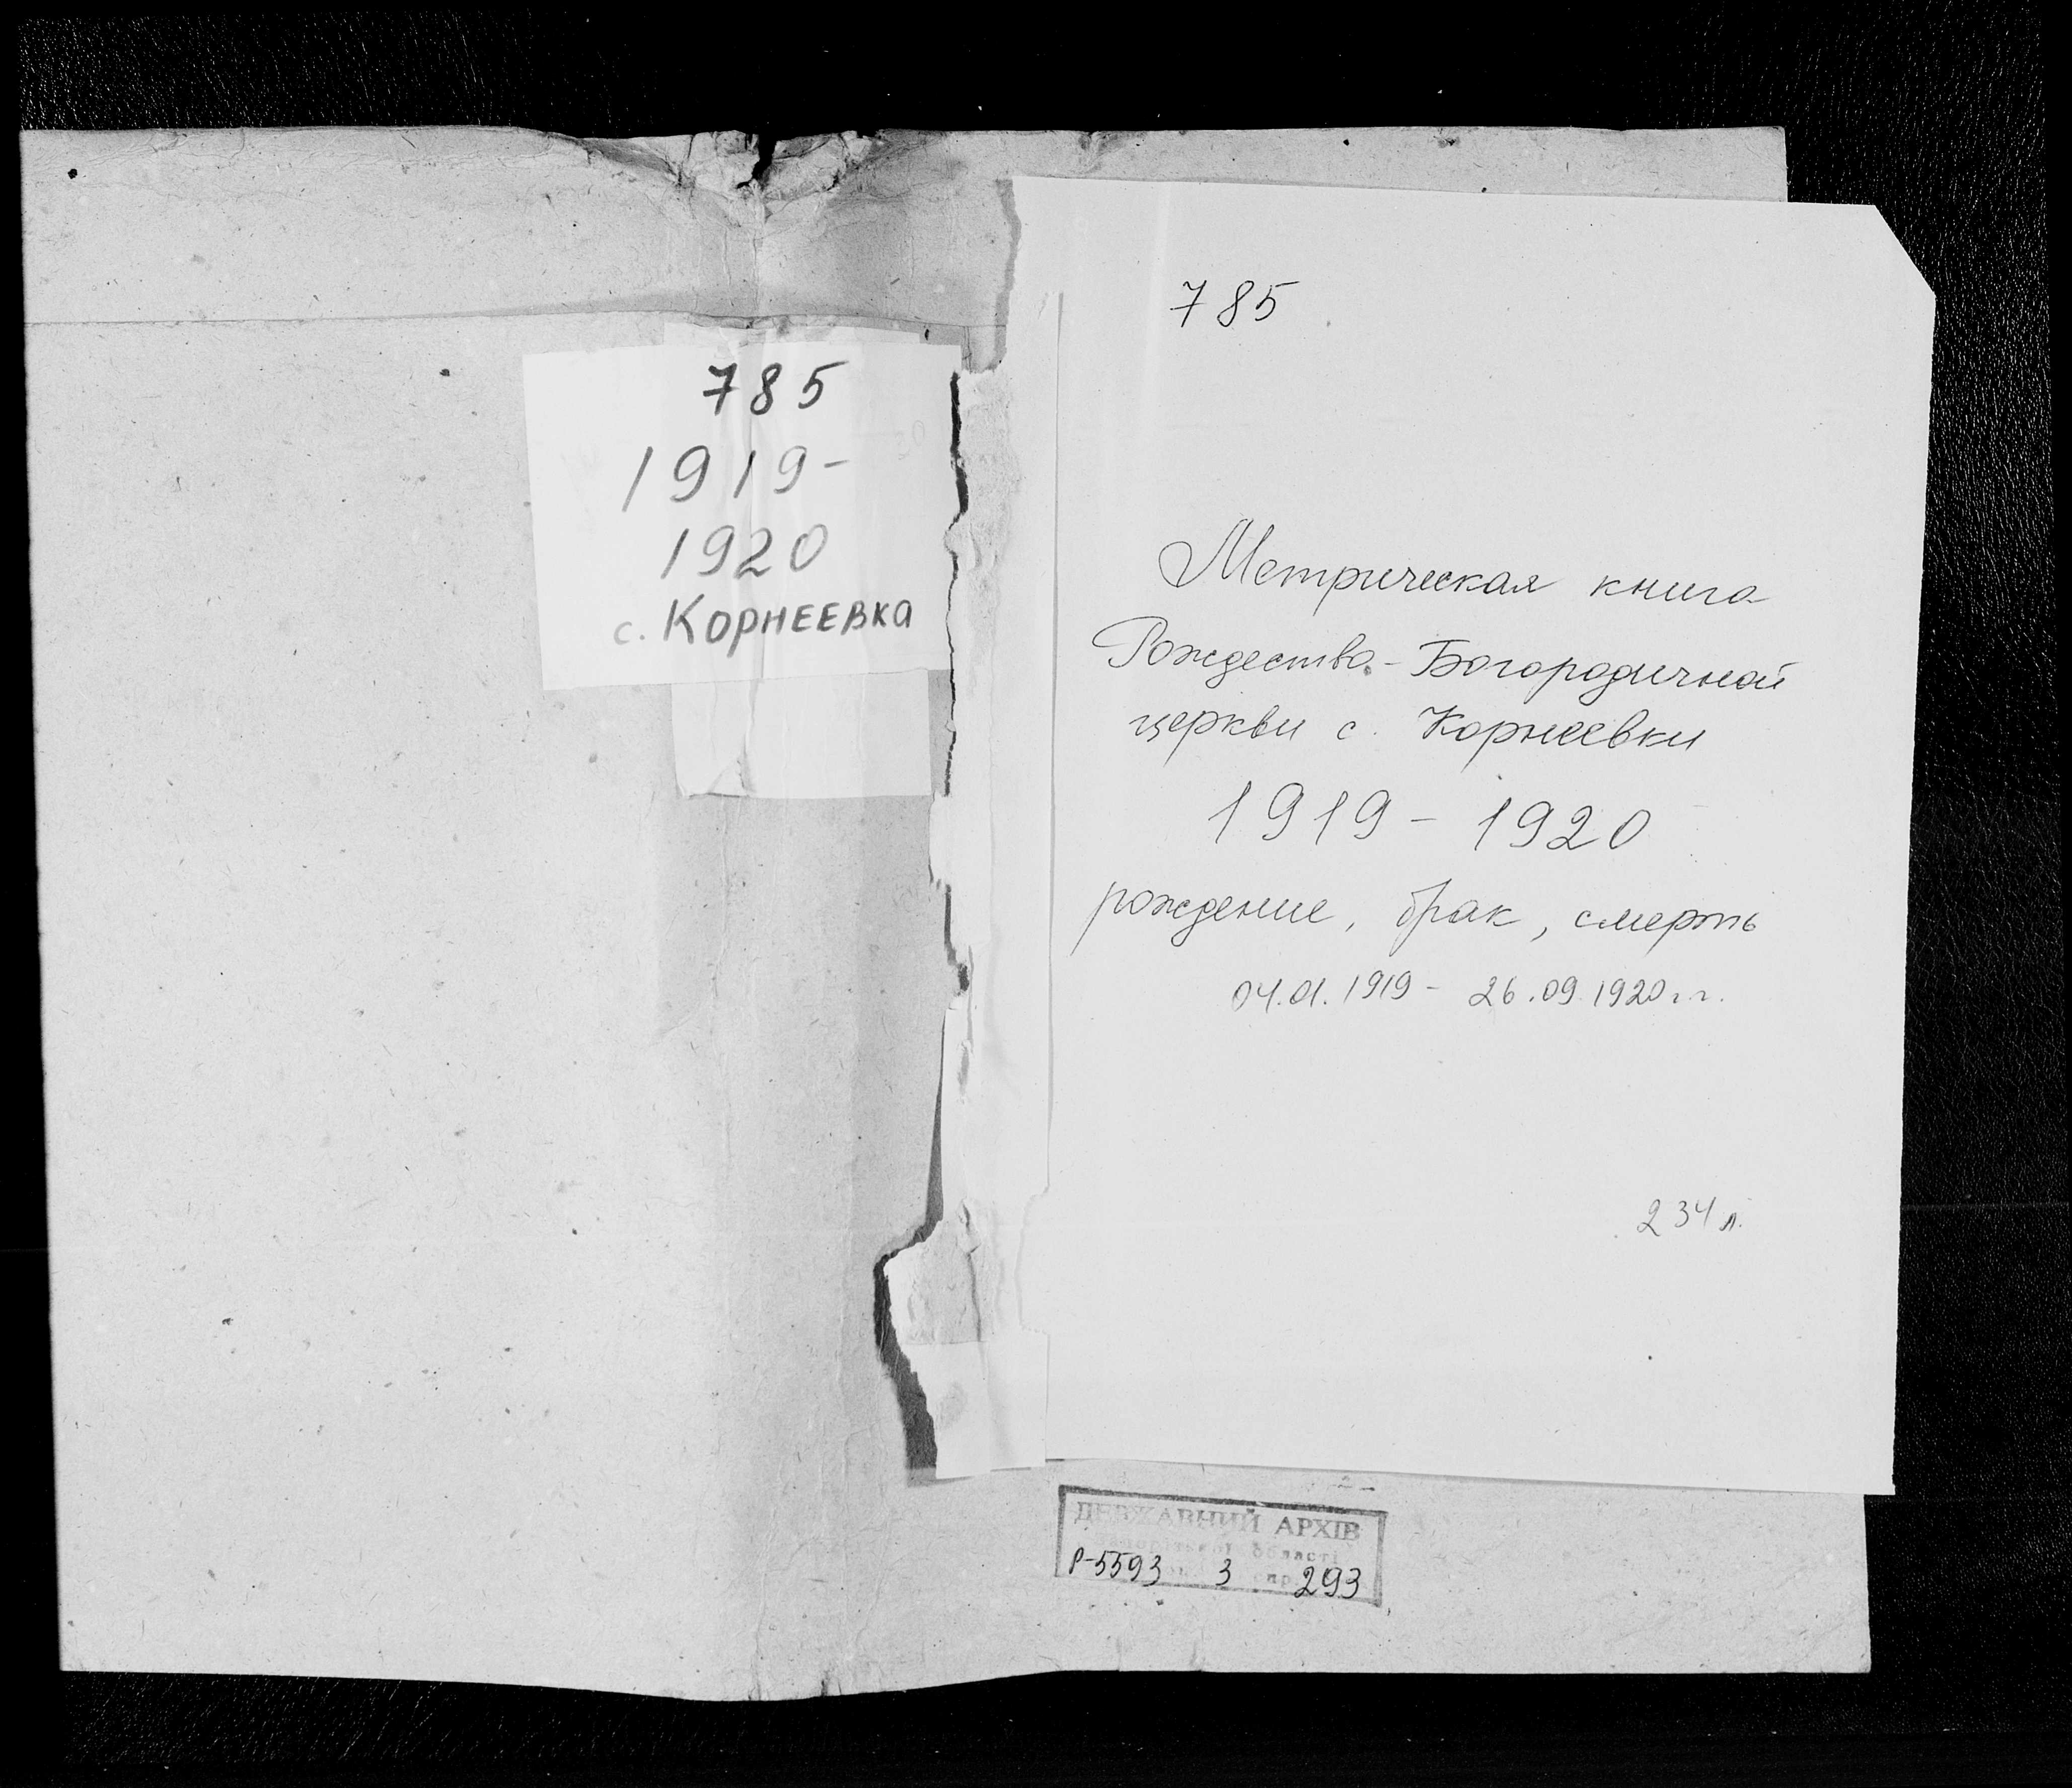 785
1919-
1920
с. Корнеевка
785
Метрическая книга
Рождество-Богородичной
церкви с. Корнеевки
1919 - 1920
рождение, брак, смерть
04.01.1919 - 26.09.1920 г.г.
234 л.
ДЕРЖАВНИЙ АРХІВ
області
Р-5593 3 293